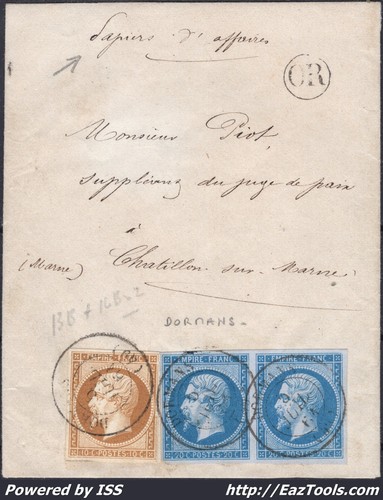 Papiers d'affaires
OR
Monsieur Piot
suppléant du juge de paix
à
(Marne) Chatillon sur Marne
13B + 14B x 2
DORMANS
EMPIRE FRANC
EMPIRE FRANC
EMPIRE FRANC
10 C POSTES 10 C
20 C POSTES 20 C
20 C POSTES 20 C
DORMANS
Powered by ISS
http://EazTools.com/